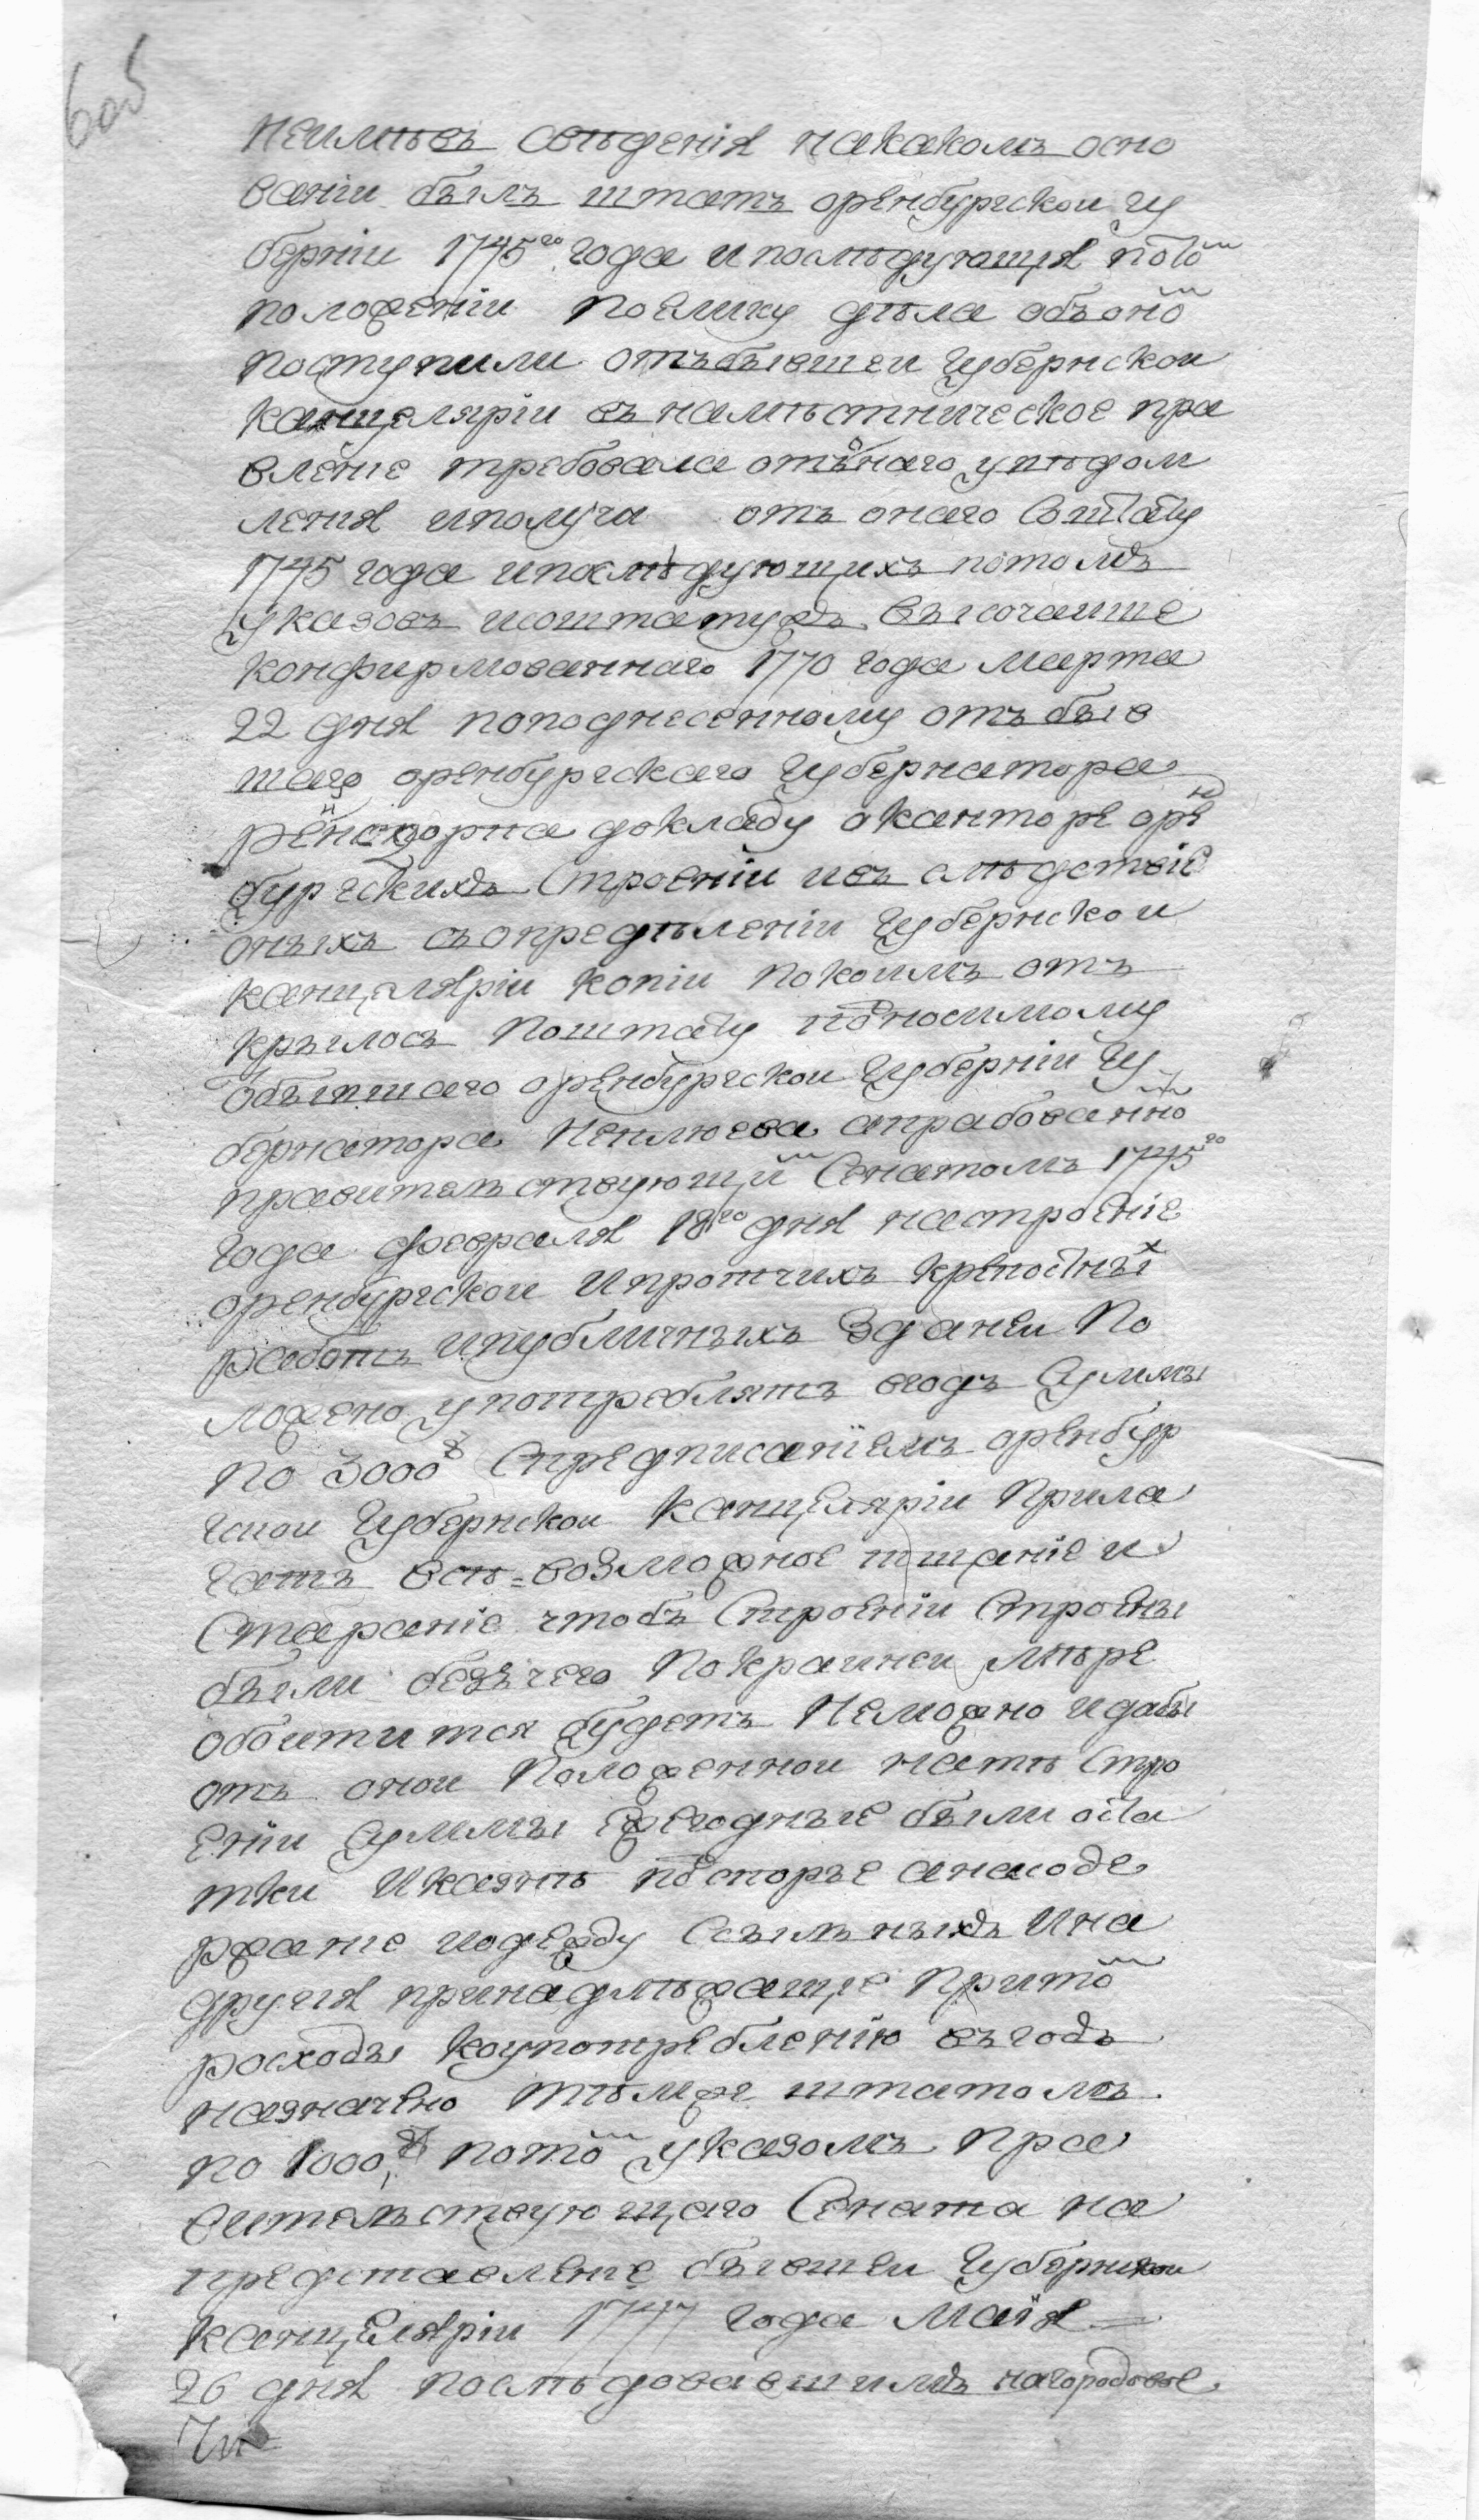 6об
Неимѣвъ свѣденія накакомъ осно
ваніи былъ штатъ оренбургскои гу
берніи 1745го года ипослѣдующия пото͞м
положеніи поелику дѣла объоно͞м
поступили отъбывшеи губернскои
канцеляріи въ намѣстническое пра
вленіе требовала отъонаго увѣдом
ления иполуча отъ онаго соштату
1745 года ипослѣдующихъ потомъ
указовъ исоштатужъ высочаише
конфирмованнаго 1770 года марта
22 дня поподнесенному отъ быв
шаго оренбургскаго губернатора
рейнсдорпа докладу аканторе оре͞н
бургскихъ строеніи ивъ слѣдствіе
оныхъ съопредѣленіи губернскои
канцеляріи копіи покоимъ от
крылось поштату подносимому
отбывшаго оренбургскои губерніи гу
бернатора неплюева апрабованно͞м
правительствующи͞м сенатомъ 1745го
года февраля 18го дня настроеніе
оренбургскои ипротчихъ крепостны͞х
работъ ипубличныхъ зданеи по
ложено употреблять вгодъ суммы
по 3000 р спредписаніемъ оренбур
гскои губернскои канцеляріи прила
гать всѣ=возможное тщание и
старание чтобъ строеніи строены
были безъчего покраинеи мѣре
обоитится будетъ неможно идабы
отъ онои положеннои натѣ стро
еніи суммы ежегодные были оста
тки иказнѣ подспорье анасоде
ржание иодежду ссыльныхъ ина
другия принадлѣжащие прито͞м
расходы коупотреблению въгодъ
назначено тѣмже штатомъ
по 1000 р пото͞м указомъ пра
вительствующаго сената на
представление бывшеи губернскои
канцеляріи 1747 года маія
26 дня послѣдовавшимъ нагородовые